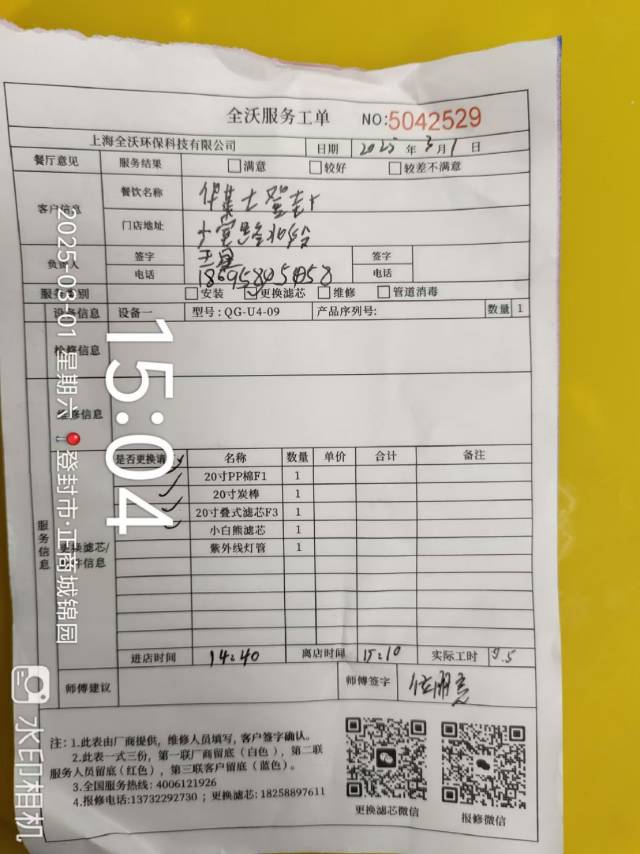 全沃服务工单 NO:5042529
上海全沃环保科技有限公司 日期 2025 年 3 月 1 日
餐厅意见 服务结果 满意 较好 较差不满意
客户信息 餐饮名称 华莱士登封
门店地址
负责人 签字 签字
电话 电话
服务类别 安装 更换滤芯 维修 管道消毒
设备信息 设备一 型号：QG-U4-09 产品序列号: 数量 1
检修信息
维修信息
服务信息
更换滤芯/
是否更换请 名称 数量 单价 合计 备注
20寸PP棉F1 1
20寸炭棒 1
20寸叠式滤芯F3 1
小白熊滤芯 1
紫外线灯管 1
进店时间 14:40 离店时间 15:10 实际工时 0.5
师傅建议 师傅签字
注：1.此表由厂商提供，维修人员填写，客户签字确认。
2.此表一式三份，第一联厂商留底（白色），第二联
服务人员留底（红色），第三联客户留底（蓝色）。
3.全国服务热线: 4006121926
4.报修电话:13732292730；更换滤芯: 18258897611
更换滤芯微信 报修微信
15:04
2025-03-01 星期六
登封市·正商城锦园
水印相机